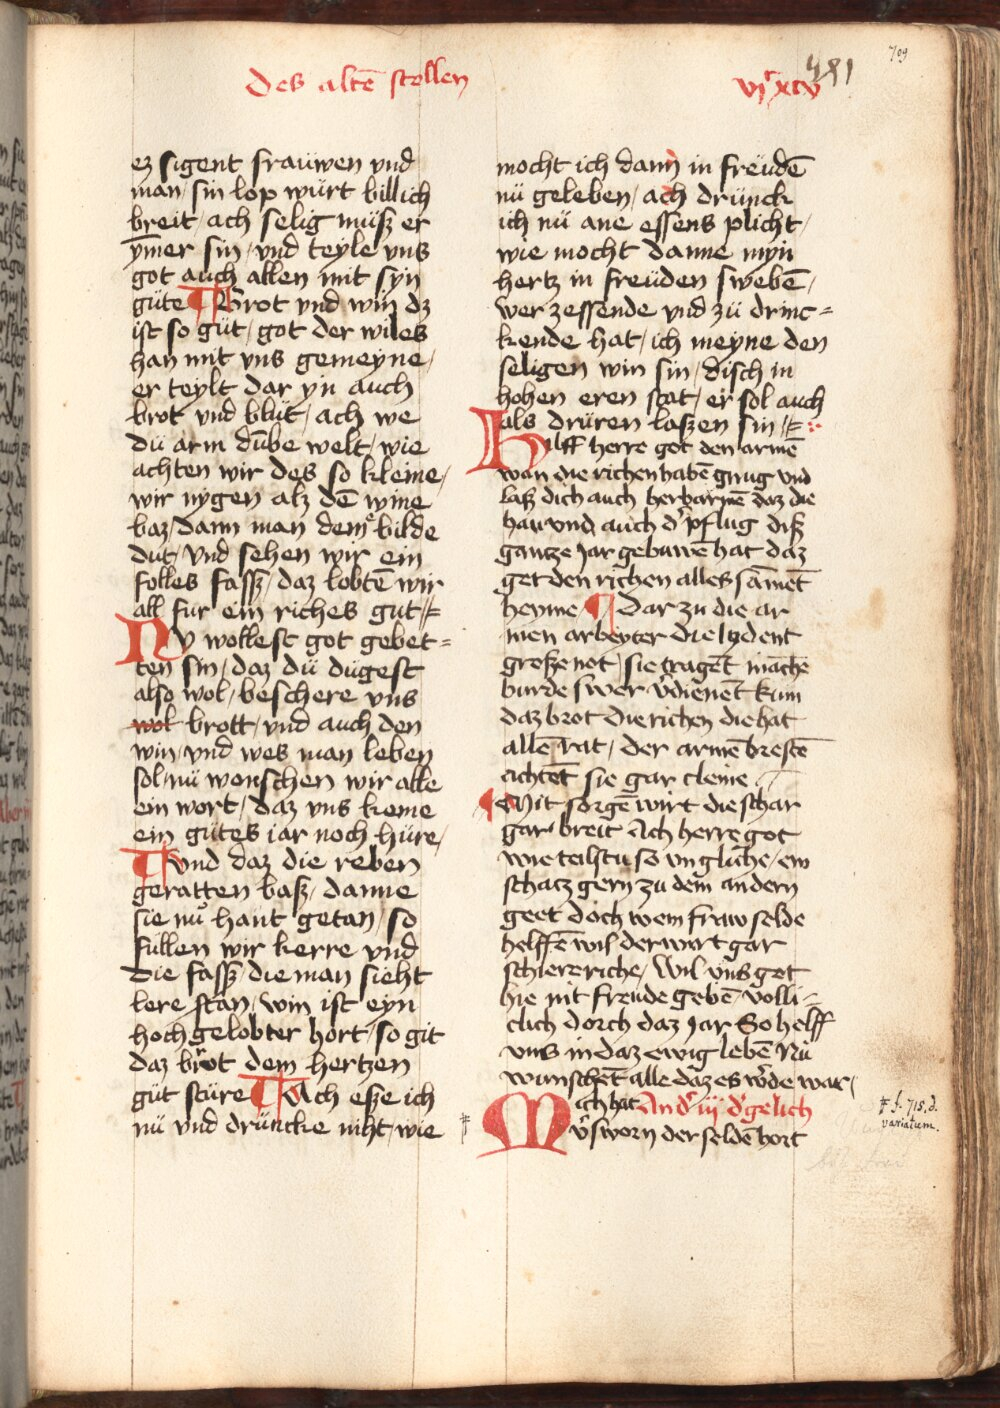 709
481
des altē stollen
vjͨ xcv
ez sigent fraüwen vnd
man / sin lop würt billich
breit / ach selig müsz er
ym̄er sin / vnd teyle vns
got auch allen mit syn
güte ¶ Brot vnd win dz
ist so güt / got der wiles
han mit vns gemeyne /
er teylt dar yn auch
brot vnd blüt / ach we
dü arm dūbe welt / wie
achten wir des so kleine /
wir nygen alz dē wine
baz / dann man dem bilde
dut / vnd sehen wir ein
folles fassz / daz lobtē wir
all fur ein riches gut
Ny wollest got gebet=
ten sin / daz dü dügest
also wol / beschere vns
wol brott / vnd auch den
win / vnd wes man leben
sol / nü wonschen wir alle
ein wort / daz vns keme
ein gütes iar noch hüre /
¶ vnd daz die reben
geratten basz / danne
sie nü hant getan / so
füllen wir kerre vnd
die fassz / die man sieht
lere stan / win ist eyn
hoch gelobter hort / so git
daz brot dem hertzen
güt stüre ¶ Ach esze ich
nü vnd drüncke niht / wie
mocht ich dann in freüdē
nü geleben / ach drünck
ich nü ane essens plicht /
wie mocht danne myn
hertz in freüden swebē /
wer zessende vnd zü drinc=
kende hat / ich meyne den
seligen win sin / disch in
hohen eren stat / er sol auch
als drüren laszen sin
Hilff herre got den armē
wan die richen habē gnug vnd
lasz dich auch herbarmē daz die
hau vnd auch d' pflug disz
gantze Jar gebuwē hat daz
get den richen alles sāmet
heyme ¶ Dar zu die ar
men arbeyter die lydent
grosze not / sie tragēt māche
burde swer v'dienēt kum
daz brot die richen die hat
allē rat / der armē brestē
achtēt sie gar cleine
¶ Mit sorgē wirt die schar
gar breit Ach herre got
wie teilstu so vngliche / ein
schatz gern zu dem andern
geet doch wem fraw selde
helffē wil der wirt gar
schiere riche / Wil vns got
hie nit freude gebē volli=
clich dorch daz Jar So helff
vns in daz ewig lebē Nu
wunschēt alle daz es w'de war /
Mich hat And' iij d'gelich
v'sworn der seldē hort
f. 715. d.
variatum.